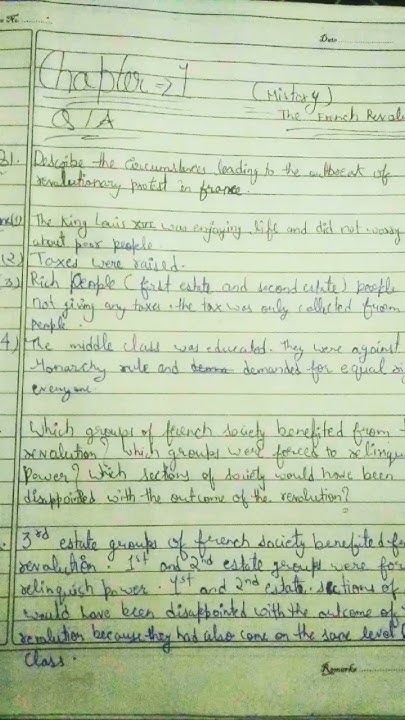 Date
Chapter => 1
(History)
Q/A
The French Revolu
Q1. Describe the circumstances leading to the outbreak of
revolutionary protest in france.
Ans(1) The King Louis XVI was enjoying life and did not worry
about poor people.
(2) Taxes were raised.
(3) Rich People (first estate and second estate) people
not giving any taxes. the tax was only collected from
people.
4) The middle class was educated. they were against
Monarchy rule and demanded for equal
everyone.
Which groups of french society benefited from
revolution? Which groups were forced to relinqu
Power? Which sections of society would have been
disappointed with the outcome of the revolution?
3rd estate groups of french society benefited f
revolution. 1st and 2nd estate groups were for
relinquish power. 1st and 2nd estate. sections of
would have been disappointed with the outcome of
revolution because they had also come on the same level
class.
Remarks